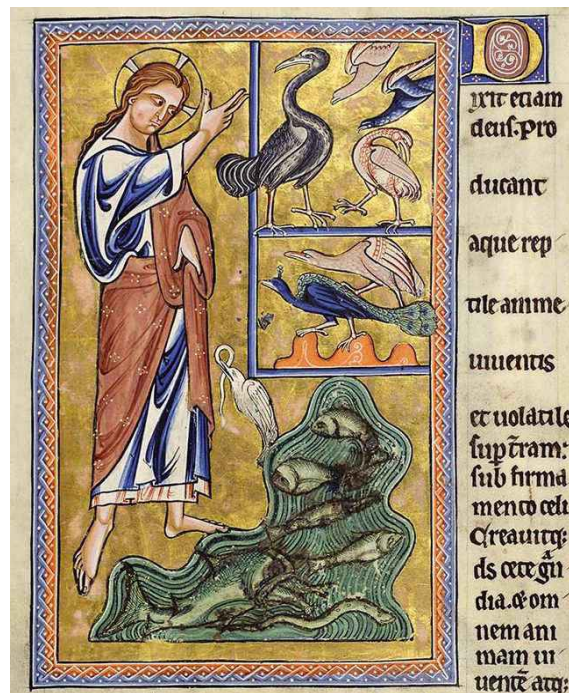 D
ixit etiam
deus. Pro
ducant
aque rep
tile anime
uiuentis
et uolatile
sup t̄ram:
sub firma
mento celi
Creauitq:
ds cete grā
dia. & om
nem ani
mam ui
uentē atq: